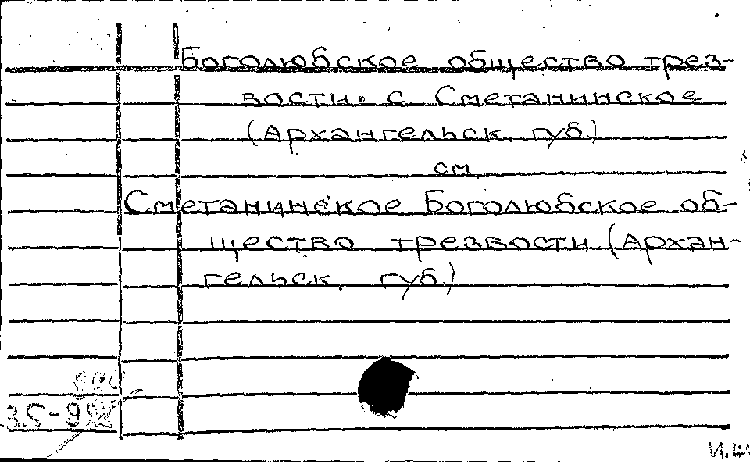 Боголюбское общество трез-
вости. с. Сметанинское
(Архангельск. губ.)
см.
Сметанинское Боголюбское об-
щество трезвости (Архан-
гельск. губ.)